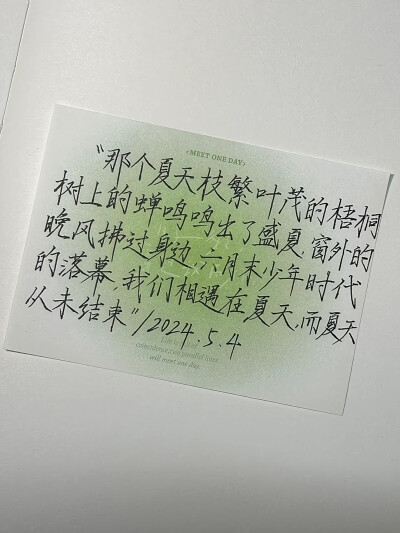 <MEET ONE DAY>
“那个夏天枝繁叶茂的梧桐
树上的蝉鸣鸣出了盛夏,窗外的
晚风拂过身边,六月末少年时代
的落幕,我们相遇在夏天,而夏天
从未结束”/2024.5.4
coincidence,two parallel lines
will meet one day.